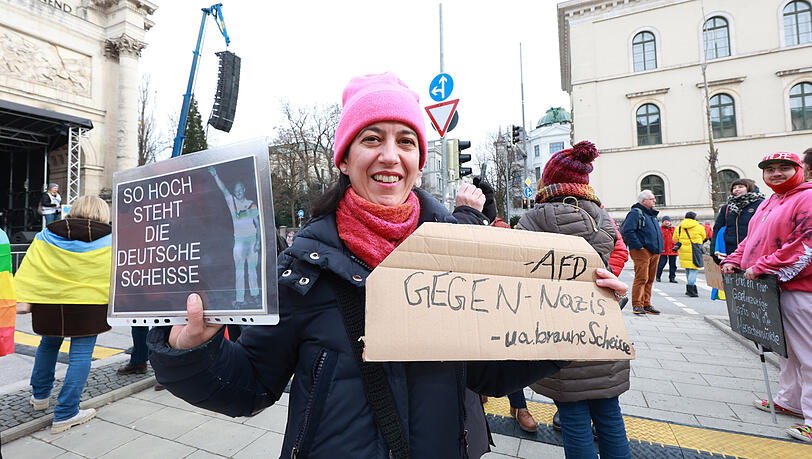 GEND
SO HOCH
STEHT
DIE
DEUTSCHE
SCHEISSE
-AFD
GEGEN-NAZIS
-ua.braune Scheisse